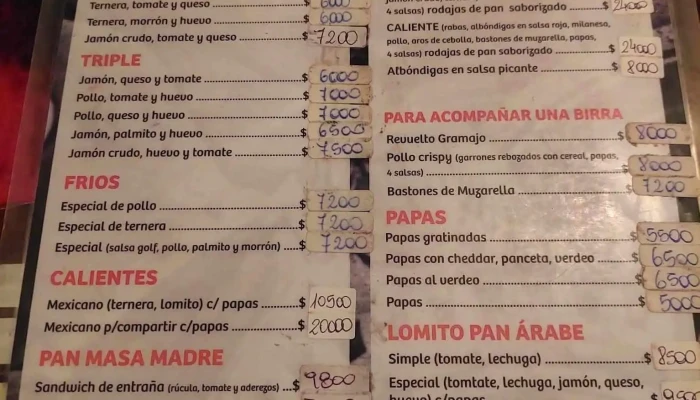 Ternera, tomate y queso $ 6000
Ternera, morrón y huevo $ 6000
Jamón crudo, tomate y queso $ 7200
TRIPLE
Jamón, queso y tomate $ 6000
Pollo, tomate y huevo $ 7000
Pollo, queso y huevo $ 7000
Jamón, palmito y huevo $ 6500
Jamón crudo, huevo y tomate $ 7.500
FRIOS
Especial de pollo $ 7200
Especial de ternera $ 7200
Especial (salsa golf, pollo, palmito y morrón) $ 7200
CALIENTES
Mexicano (ternera, lomito) c/ papas $ 10500
Mexicano p/compartir c/papas $ 20000
PAN MASA MADRE
Sandwich de entraña (rúcula, tomate y aderezos) $ 9800
4 salsas) rodajas de pan saborizado $ 24000
CALIENTE (rabas, albóndigas en salsa roja, milanesa,
pollo, aros de cebolla, bastones de muzarella, papas,
4 salsas) rodajas de pan saborizado $ 24000
Albóndigas en salsa picante $ 8000
PARA ACOMPAÑAR UNA BIRRA
Revuelto Gramajo $ 8000
Pollo crispy (garrones rebozados con cereal, papas,
4 salsas) $ 8000
Bastones de Muzarella $ 7200
PAPAS
Papas gratinadas $ 5500
Papas con cheddar, panceta, verdeo $ 6500
Papas al verdeo $ 6500
Papas $ 500
LOMITO PAN ÁRABE
Simple (tomate, lechuga) $ 8500
Especial (tomtate, lechuga, jamón, queso,
huevo) c/papas $